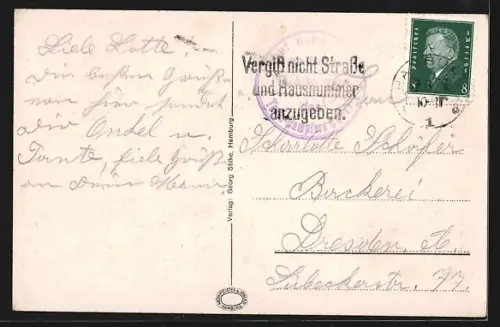 Liebe Lotte!
Die besten Grüße
von hier sendet
Dir Onkel u.
Tante, viele Grüße
an Deine Mama
Verlag: Georg Stilke, Hamburg
Vergiß nicht Straße
und Hausnummer
anzugeben.
Deutsches Reich
8 8
Charlotte Schäfer
Bäckerei
Dresden, A.
Lübeckerstr. 77.